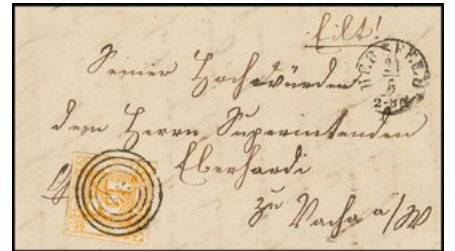 Eilt!
HERSFELD
21
5
Seiner Hochwürden
dem Herrn Superintenden
Eberhardi
zu Vacha a/W